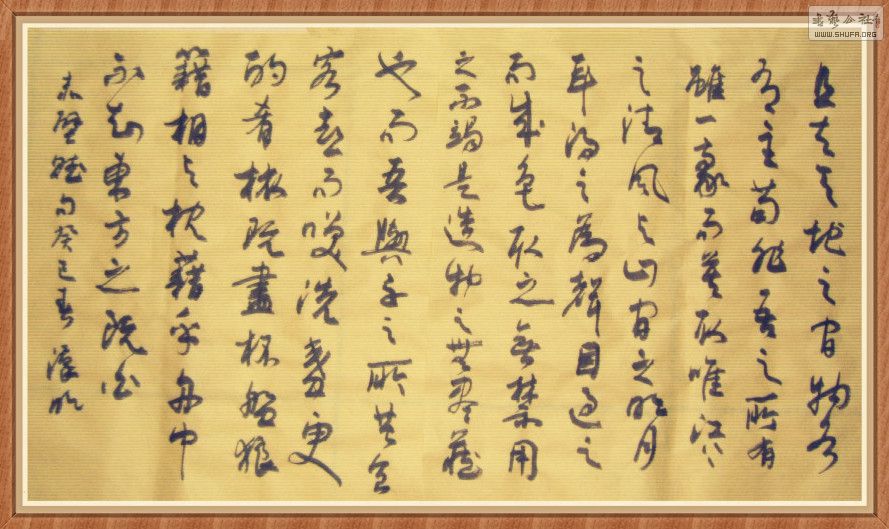 且夫天地之间物各
有主苟非吾之所有
雖一毫而莫取唯江上
之清风与山间之明月
耳得之為聲目遇之
而成色取之無禁用
之不竭是造物之無尽藏
也而吾與子之所共食
客喜而咲洗盞更
酌肴核既盡杯盤狼
籍相与枕藉乎舟中
不知東方之既白
赤壁赋句癸巳春
WWW.SHUFA.ORG